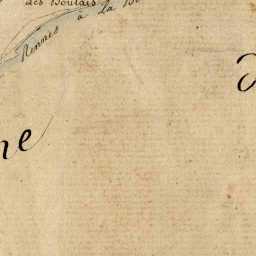 des Boulais
Rennes à La
ne